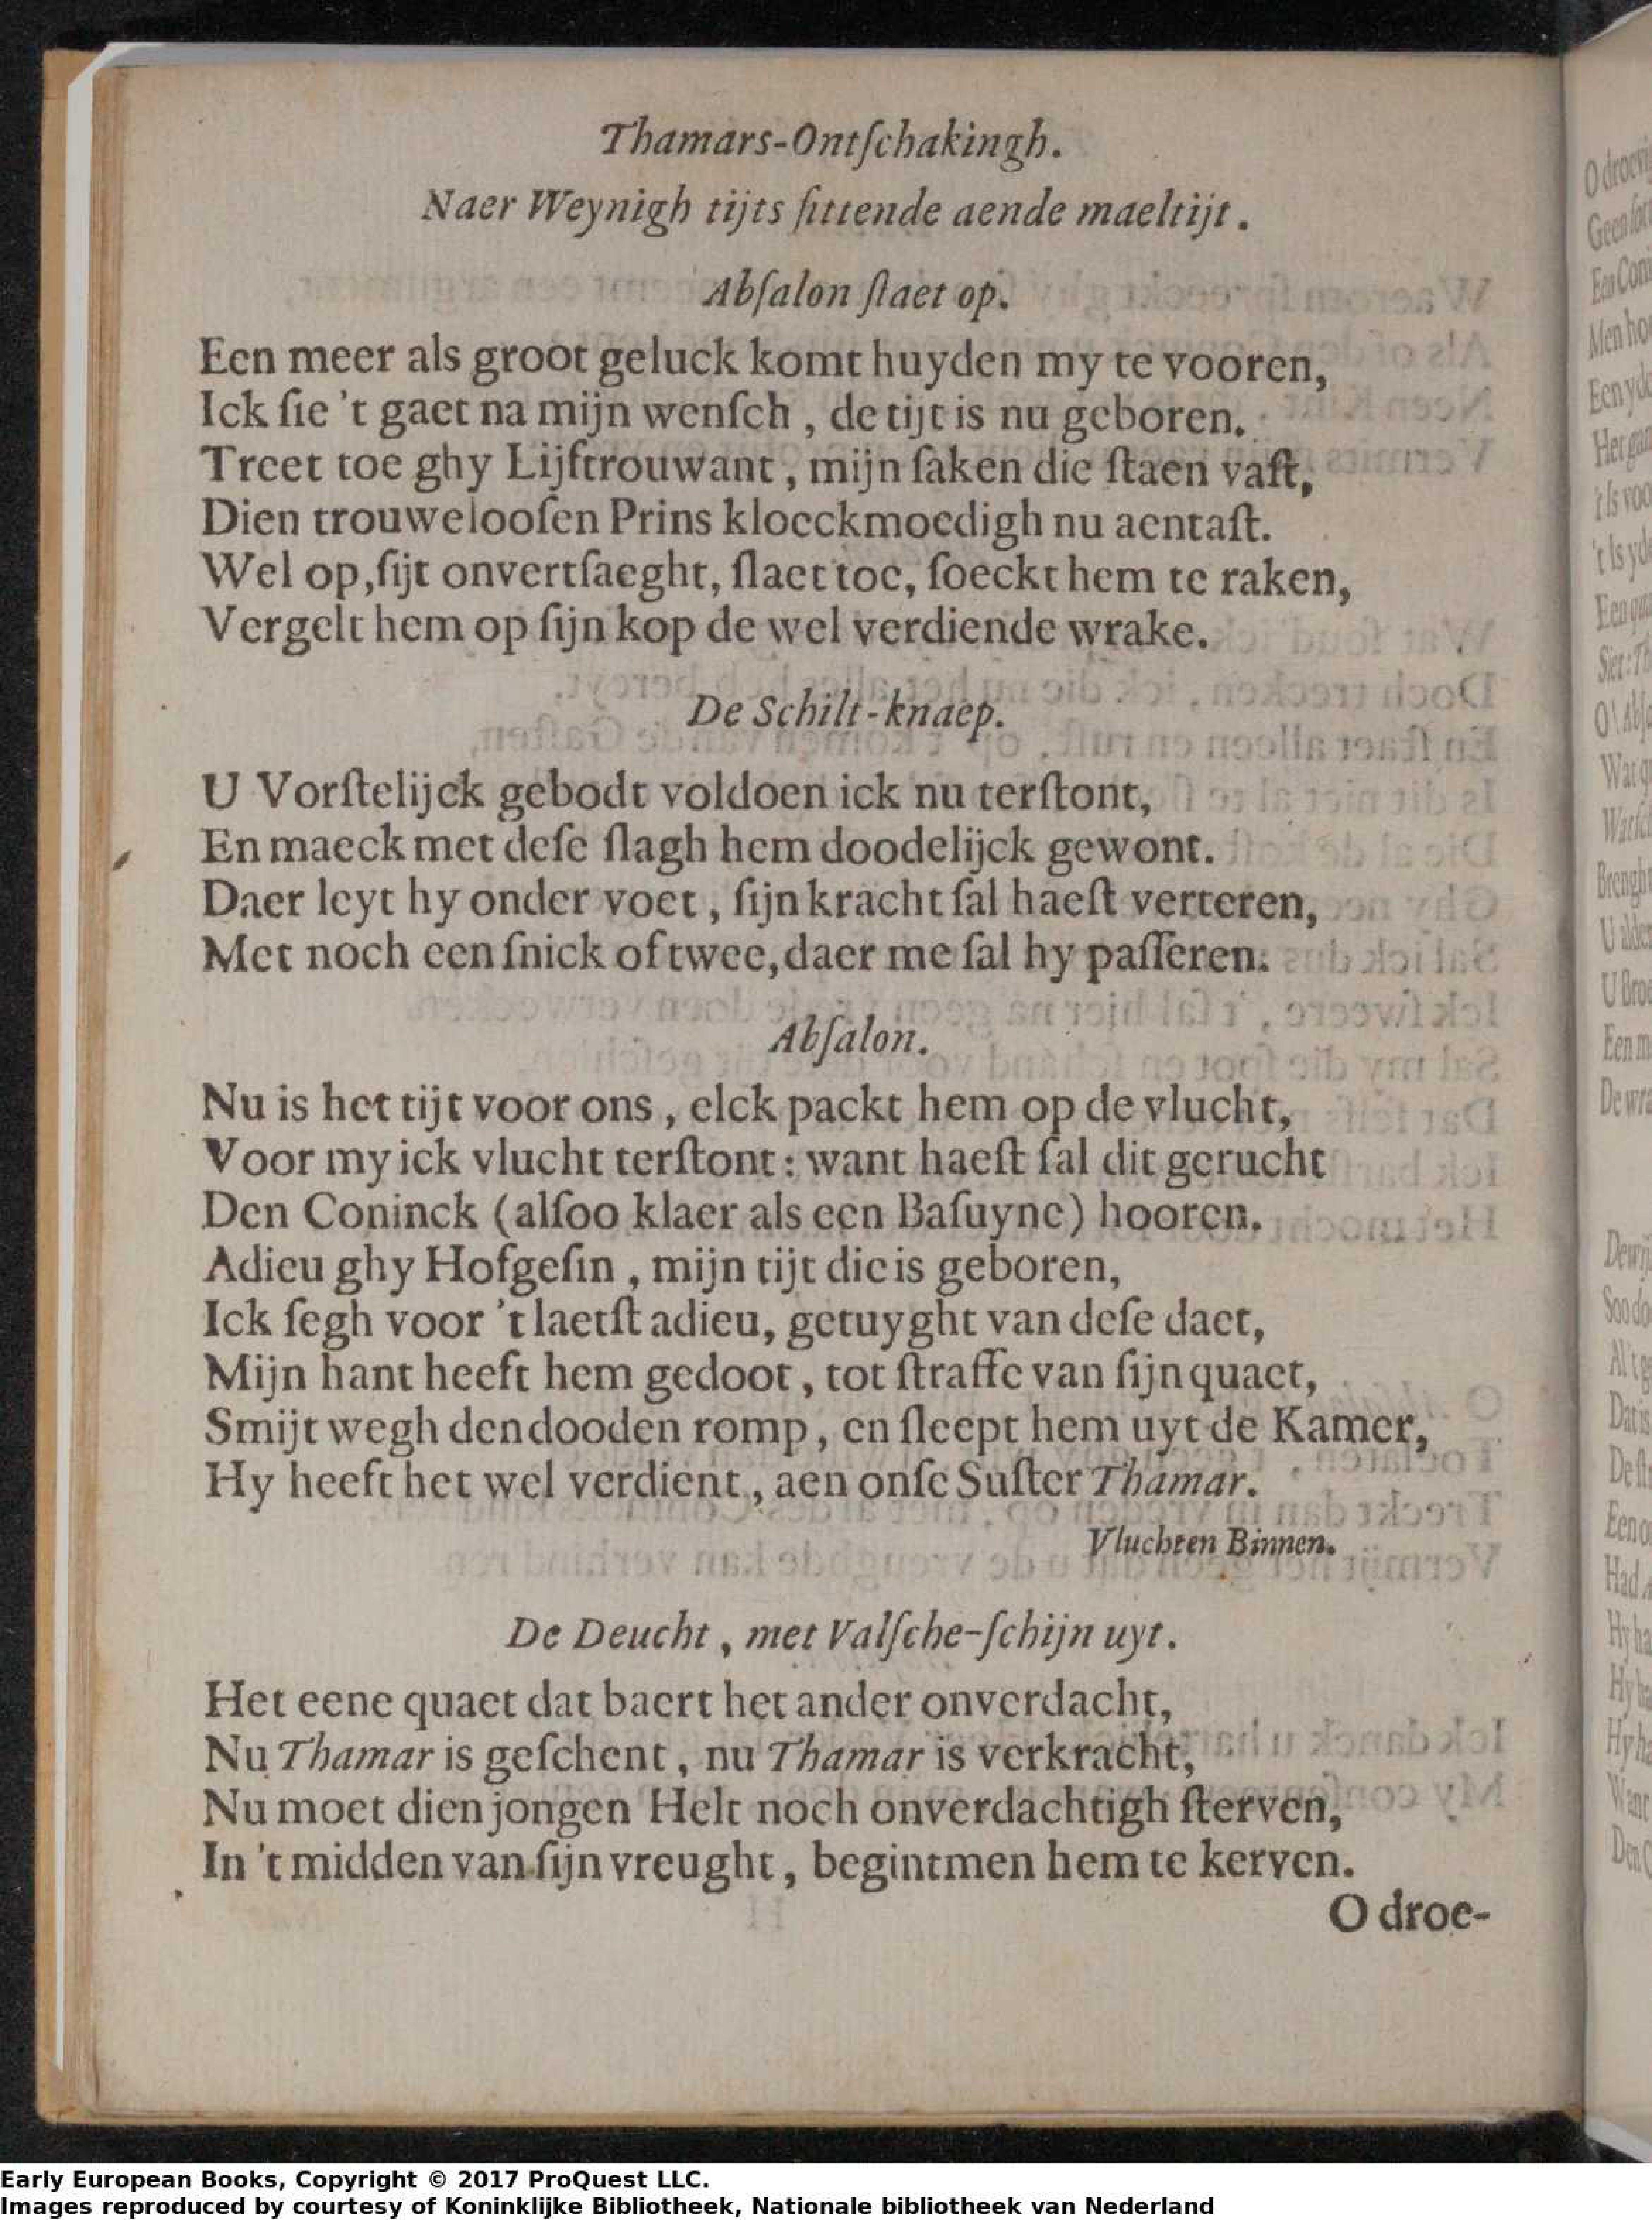 Thamars-Ontſchakingh.
Naer Weynigh tijts ſittende aende maeltijt.
Abſalon ſtaet op.
Een meer als groot geluck komt huyden my te vooren,
Ick ſie 't gaet na mijn wenſch, de tijt is nu geboren.
Treet toe ghy Lijftrouwant, mijn ſaken die ſtaen vaſt,
Dien trouwelooſen Prins kloeckmoedigh nu aentaſt.
Wel op, ſijt onvertſaeght, ſlaet toe, ſoeckt hem te raken,
Vergelt hem op ſijn kop de wel verdiende wrake.
De Schilt-knaep.
U Vorſtelijck gebodt voldoen ick nu terſtont,
En maeck met deſe ſlagh hem doodelijck gewont.
Daer leyt hy onder voet, ſijn kracht ſal haeſt verteren,
Met noch een ſnick of twee, daer me ſal hy paſſeren.
Abſalon.
Nu is het tijt voor ons, elck packt hem op de vlucht,
Voor my ick vlucht terſtont: want haeſt ſal dit gerucht
Den Coninck (alſoo klaer als een Baſuyne) hooren.
Adieu ghy Hofgeſin, mijn tijt die is geboren,
Ick ſegh voor 't laetſt adieu, getuyght van deſe daet,
Mijn hant heeft hem gedoot, tot ſtraffe van ſijn quaet,
Smijt wegh den dooden romp, en ſleept hem uyt de Kamer,
Hy heeft het wel verdient, aen onſe Suſter Thamar.
Vluchten Binnen.
De Deucht, met Valſche-ſchijn uyt.
Het eene quaet dat baert het ander onverdacht,
Nu Thamar is geſchent, nu Thamar is verkracht,
Nu moet dien jongen Helt noch onverdachtigh ſterven,
In 't midden van ſijn vreught, begintmen hem te kerven.
O droe-
Early European Books, Copyright © 2017 ProQuest LLC.
Images reproduced by courtesy of Koninklijke Bibliotheek, Nationale bibliotheek van Nederland